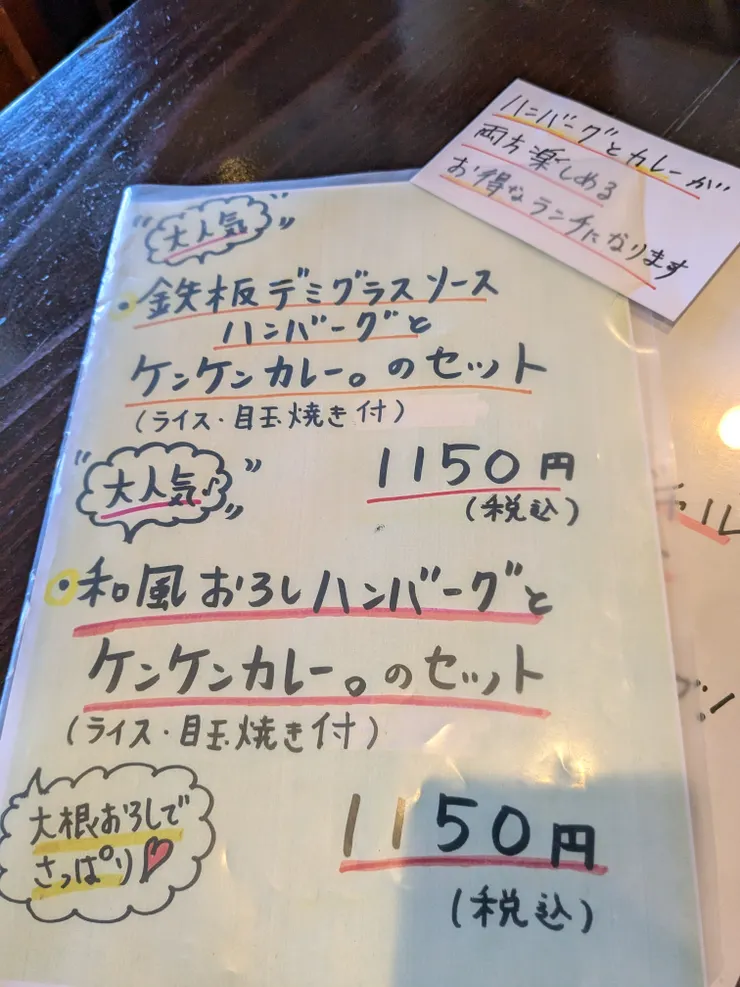 ハンバーグとカレーが
両方楽しめる
お得なランチになります
"大人気"
・鉄板デミグラスソース
ハンバーグと
ケンケンカレー。のセット
(ライス・目玉焼き付)
1150円
(税込)
"大人気♪"
・和風おろしハンバーグと
ケンケンカレー。のセット
(ライス・目玉焼き付)
大根おろしで
さっぱり♥
1150円
(税込)